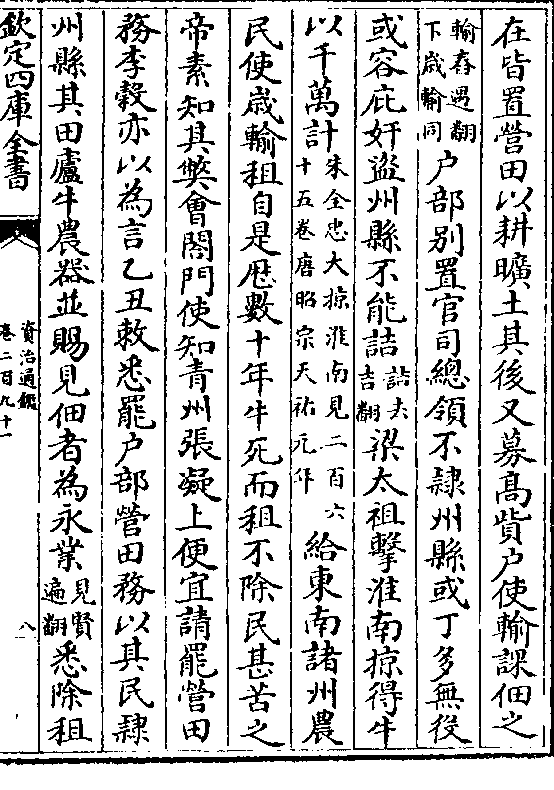 在皆置營田以耕曠土其後又募高貲戸使輸課佃之
輸舂遇翻
下歳輸同
戸部别置官司總領不𨽻州縣或丁多無役
或容庇奸盜州縣不能詰
詰去
吉翻
梁太祖擊淮南掠得牛
以千萬計
朱全忠大掠淮南見二百六
十五卷唐昭宗天祐元年
給東南諸州農
民使歳輸租自是歴數十年牛死而租不除民甚苦之
帝素知其獘會閤門使知青州張凝上便宜請罷營田
務李穀亦以為言乙丑敕悉罷戸部營田務以其民𨽻
州縣其田廬牛農器並賜見佃者為永業
見賢
遍翻
悉除租
欽定四庫全書
資治通鑑
卷二百九十一
八